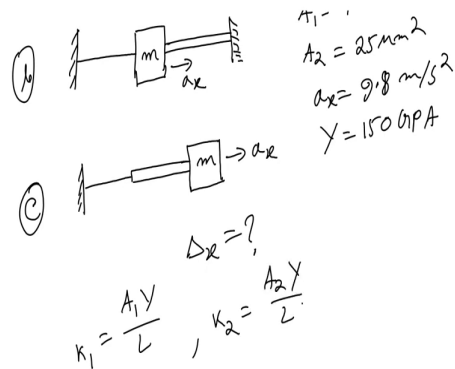 A₁ =
A₂ = 25 mm²
aₓ = 9.8 m/s²
Y = 150 GPA
b
m
→
aₓ
c
m → aₓ
Δx = ?
K₁ = A₁Y / L , K₂ = A₂Y / L